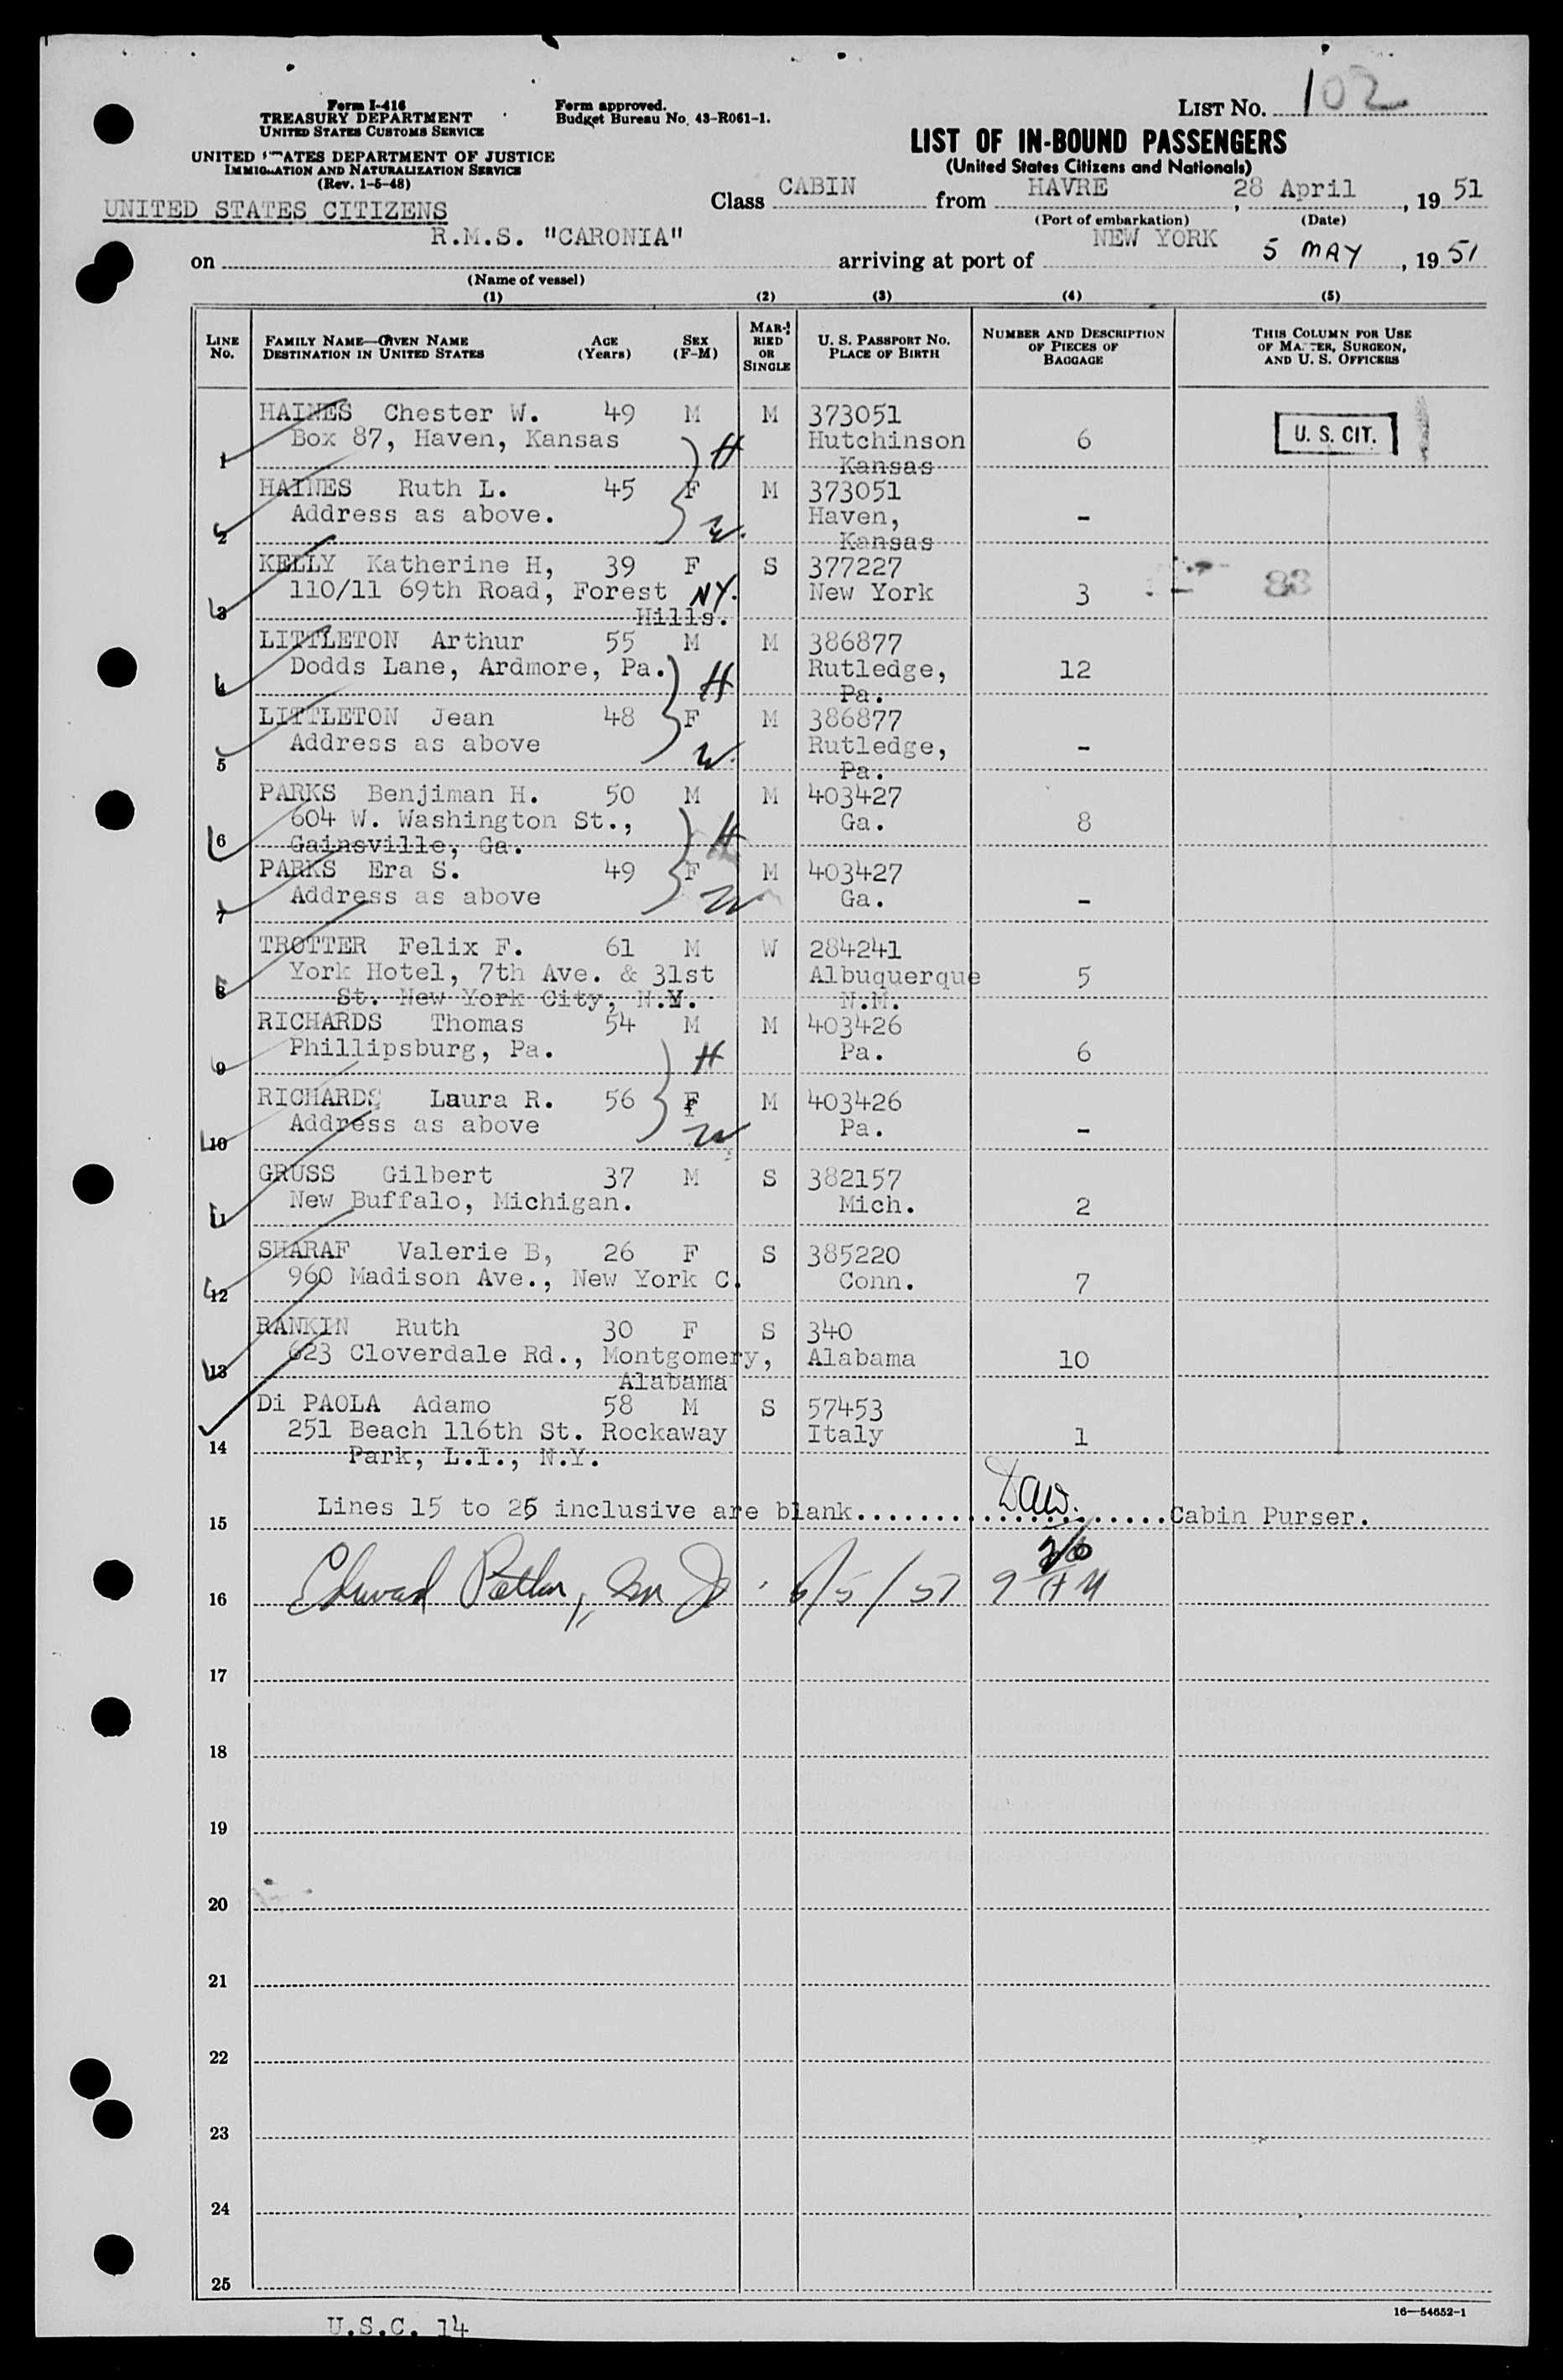 Form I-416
TREASURY DEPARTMENT
UNITED STATES CUSTOMS SERVICE
UNITED STATES DEPARTMENT OF JUSTICE
IMMIGRATION AND NATURALIZATION SERVICE
(Rev. 1-5-48)
Form approved.
Budget Bureau No. 43-R061-1.
LIST NO. 102
LIST OF IN-BOUND PASSENGERS
(United States Citizens and Nationals)
UNITED STATES CITIZENS
Class CABIN from HAVRE, 28 April, 1951
(Port of embarkation) (Date)
on R.M.S. "CARONIA" arriving at port of NEW YORK 5 MAY, 1951
(Name of vessel)
(1) (2) (3) (4) (5)
LINE NO.
FAMILY NAME—GIVEN NAME
DESTINATION IN UNITED STATES
AGE (Years)
SEX (F-M)
MARRIED OR SINGLE
U. S. PASSPORT NO.
PLACE OF BIRTH
NUMBER AND DESCRIPTION OF PIECES OF BAGGAGE
THIS COLUMN FOR USE OF MASTER, SURGEON, AND U. S. OFFICERS
HAINES Chester W. 49 M M 373051
Box 87, Haven, Kansas H Hutchinson 6 U. S. CIT.
1 Kansas
HAINES Ruth L. 45 F M 373051
Address as above. W. Haven, -
2 Kansas
KELLY Katherine H, 39 F S 377227
110/11 69th Road, Forest NY. New York 3 83
3 Hills.
LITTLETON Arthur 55 M M 386877
Dodds Lane, Ardmore, Pa. H Rutledge, 12
4 Pa.
LITTLETON Jean 48 F M 386877
Address as above W. Rutledge, -
5 Pa.
PARKS Benjiman H. 50 M M 403427
604 W. Washington St., H Ga. 8
6 Gainsville, Ga.
PARKS Era S. 49 F M 403427
Address as above W Ga. -
7
TROTTER Felix F. 61 M W 284241
York Hotel, 7th Ave. & 31st Albuquerque 5
8 St. New York City, N.Y. N.M.
RICHARDS Thomas 54 M M 403426
Phillipsburg, Pa. H Pa. 6
9
RICHARDS Laura R. 56 F M 403426
Address as above W Pa. -
10
GRUSS Gilbert 37 M S 382157
New Buffalo, Michigan. Mich. 2
11
SHARAF Valerie B, 26 F S 385220
960 Madison Ave., New York C. Conn. 7
12
RANKIN Ruth 30 F S 340
623 Cloverdale Rd., Montgomery, Alabama 10
13 Alabama
Di PAOLA Adamo 58 M S 57453
251 Beach 116th St. Rockaway Italy 1
14 Park, L.I., N.Y.
Lines 15 to 25 inclusive are blank....................Cabin Purser.
15
16 Edward
17
18
19
20
21
22
23
24
25
16—54652-1
U.S.C. 14